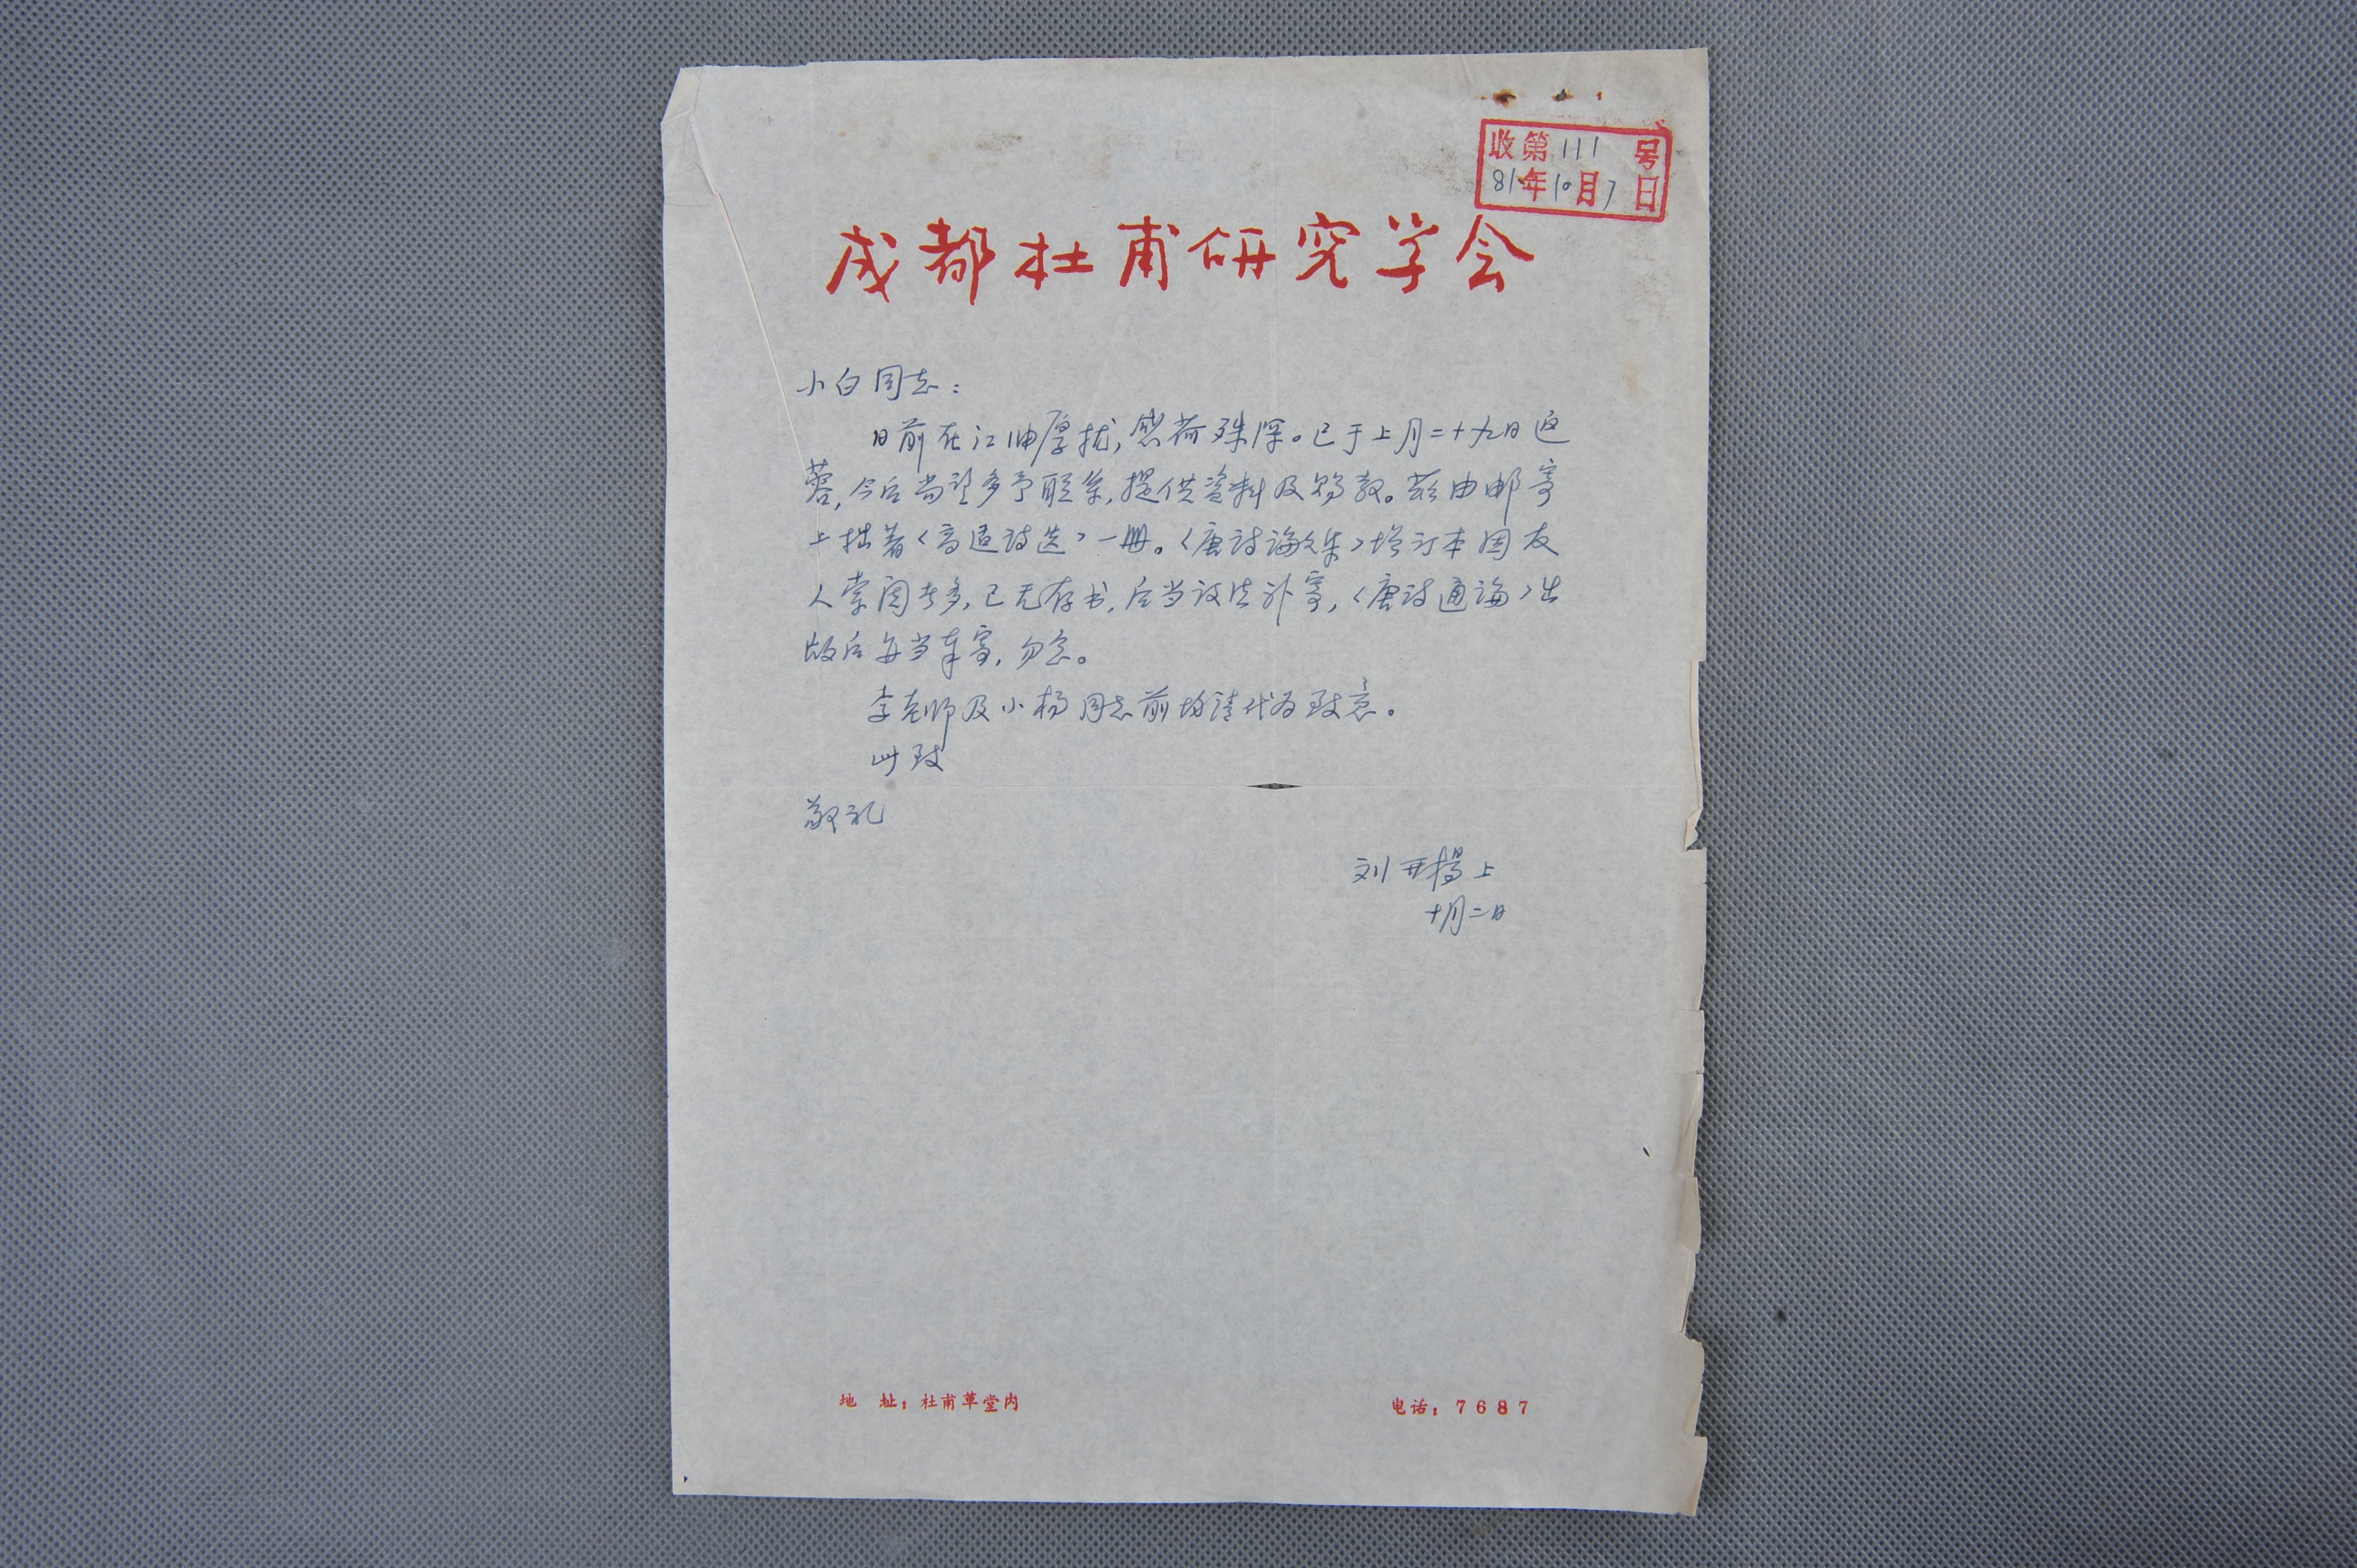 收第111号
81年10月7日
成都杜甫研究学会
小白同志：
日前在江油厚扰，感荷殊深。已于上月二十九日返
蓉，今后尚望多予联系，提供资料及赐教。兹由邮寄
上拙著〈高适诗选〉一册。〈唐诗论文集〉增订本因友
人索阅者多，已无存书，后当设法补寄，〈唐诗通论〉出
版后亦当奉寄，勿念。
李老师及小杨同志前均请代为致意。
此致
敬礼
刘开扬上
十月二日
地 址：杜甫草堂内
电话：7687